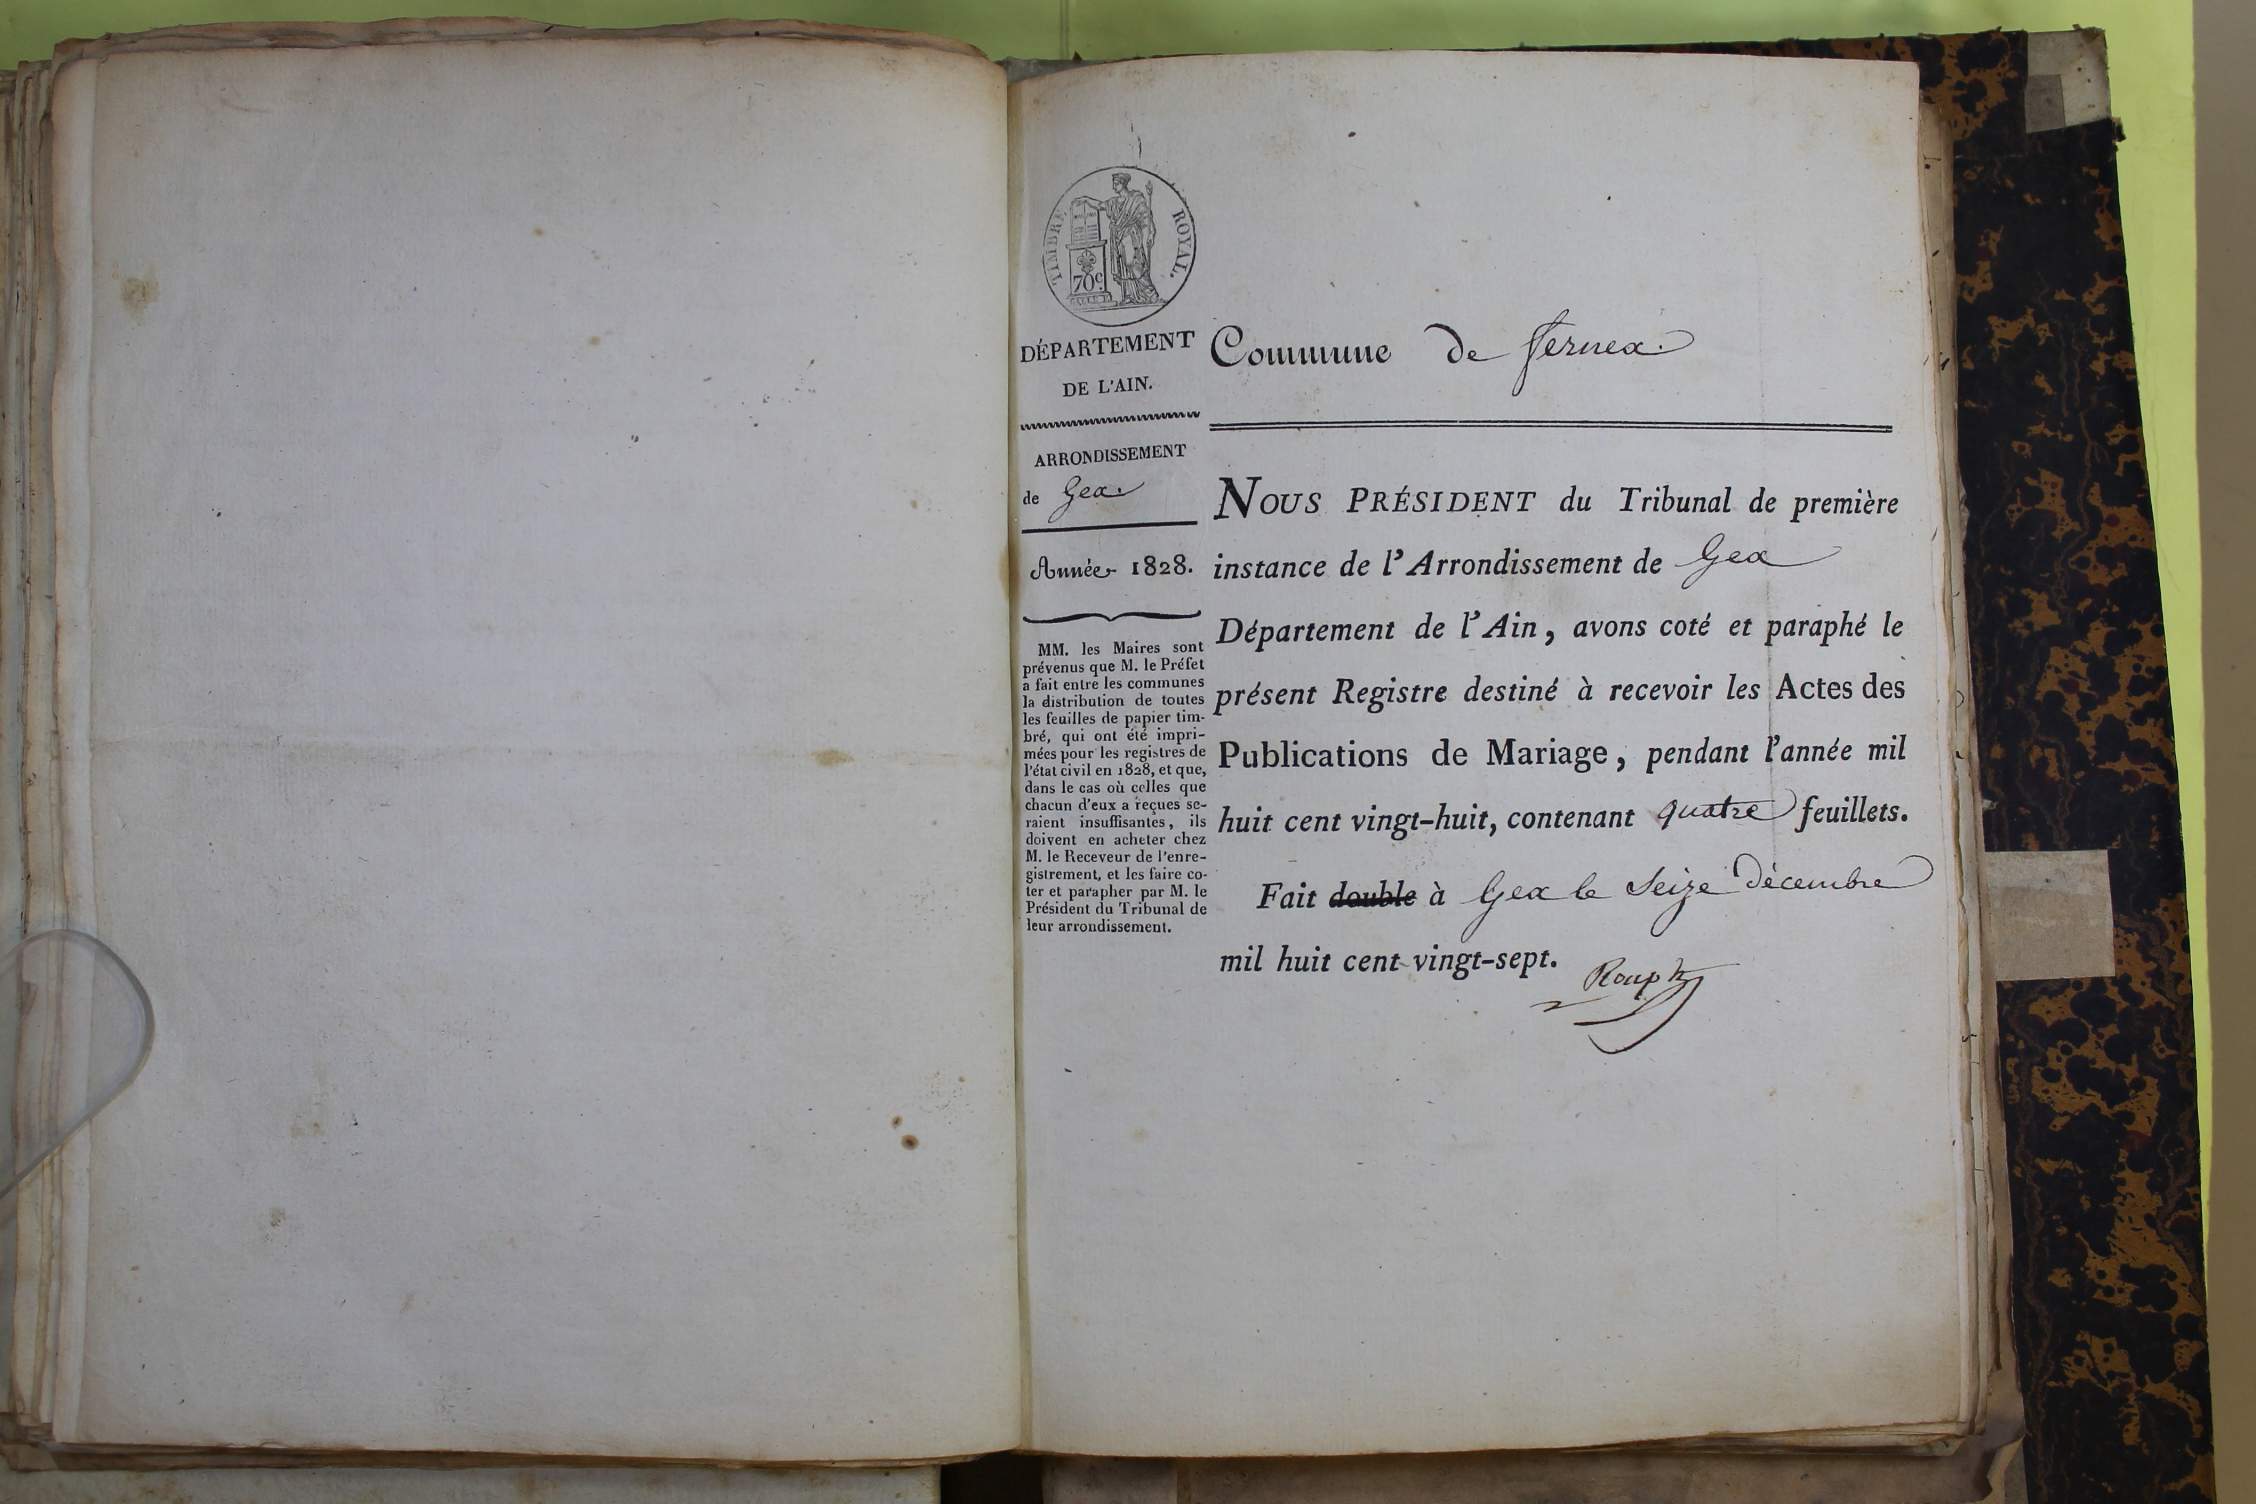 TIMBRE ROYAL.
70c.
DÉPARTEMENT
DE L'AIN.
ARRONDISSEMENT
de Gex.
Année 1828.
MM. les Maires sont
prévenus que M. le Préfet
a fait entre les communes
la distribution de toutes
les feuilles de papier tim-
bré, qui ont été impri-
mées pour les registres de
l'état civil en 1828, et que,
dans le cas où celles que
chacun d'eux a reçues se-
raient insuffisantes, ils
doivent en acheter chez
M. le Receveur de l'enre-
gistrement, et les faire co-
ter et parapher par M. le
Président du Tribunal de
leur arrondissement.
Commune de fernex.
NOUS PRÉSIDENT du Tribunal de première
instance de l'Arrondissement de Gex
Département de l'Ain, avons coté et paraphé le
présent Registre destiné à recevoir les Actes des
Publications de Mariage, pendant l'année mil
huit cent vingt-huit, contenant quatre feuillets.
Fait double à Gex le Seize décembre
mil huit cent vingt-sept.
Rouph